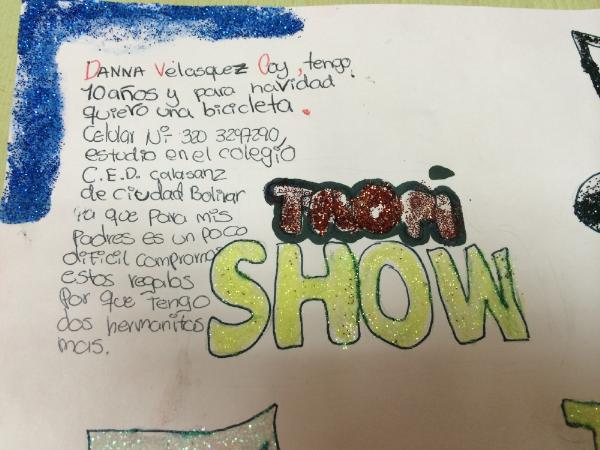 DANNA Vélasquez Coy, tengo
10 años y para navidad
quiero una bicicleta.
Celular Nº 320 3297290,
estudio en el colegio
C.E.D. Calasanz
de ciudad Bolivar
ya que para mis
Padres es un poco
dificil comprarnos
estos regalos
Por que tengo
dos hermanitos
mas.
TROPI
SHOW